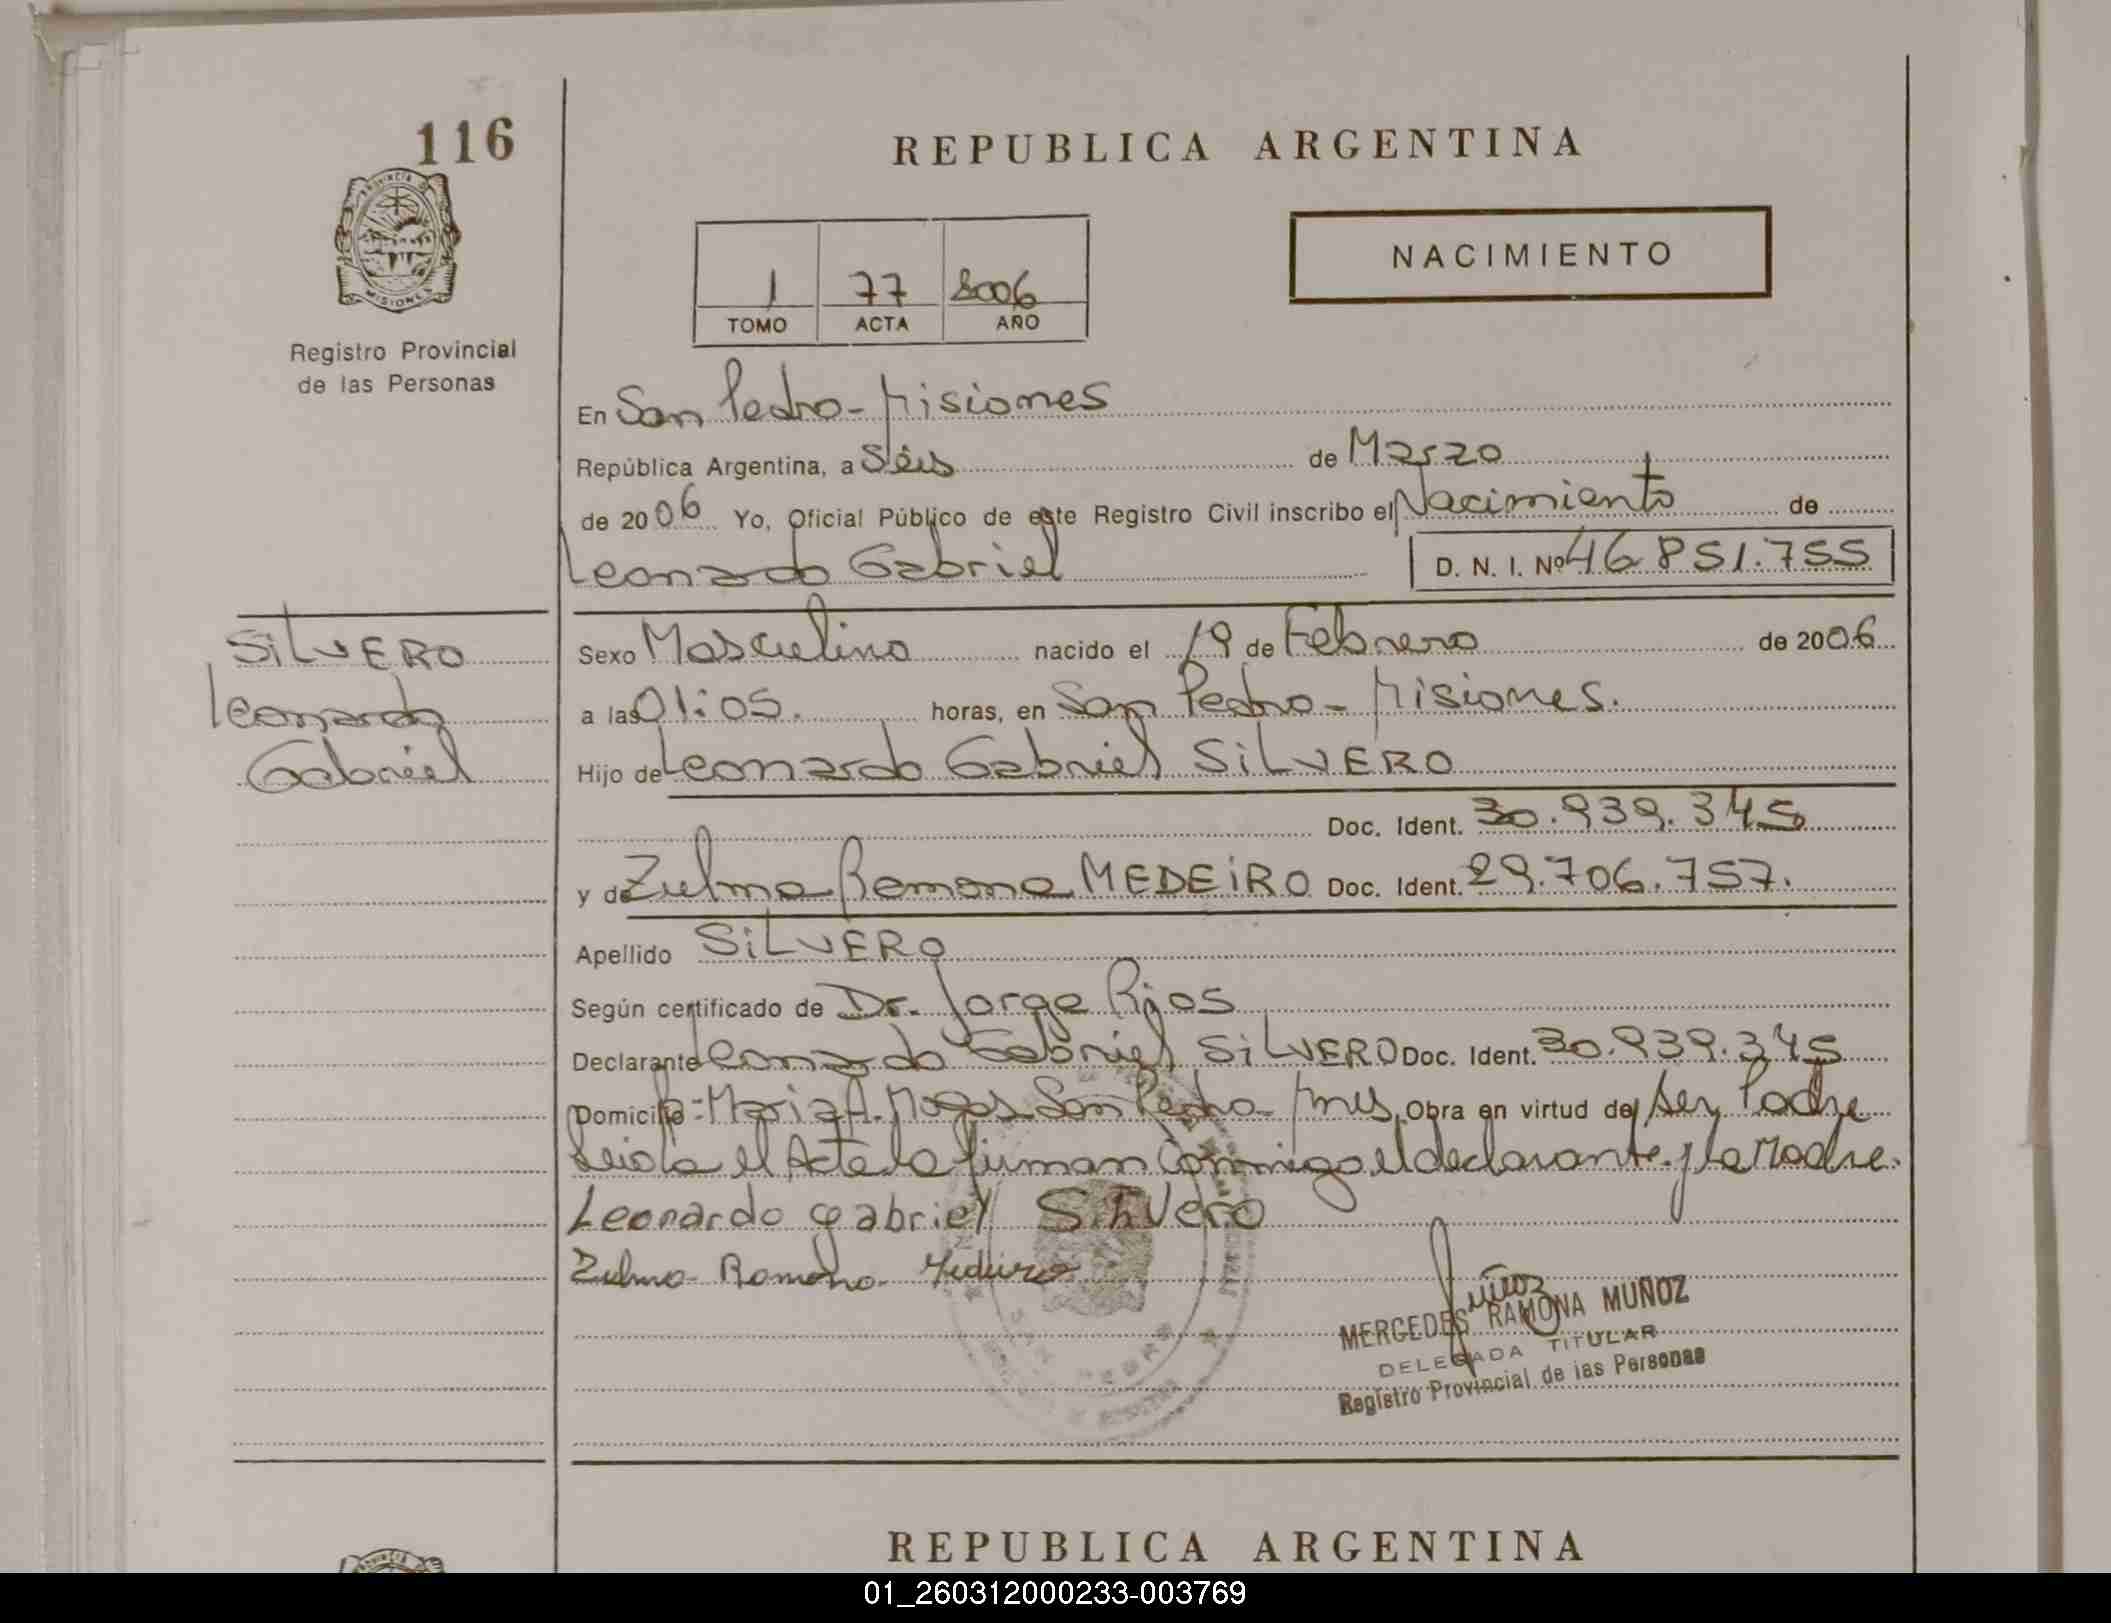 116
REPUBLICA ARGENTINA
PROVINCIA D
MISIONES
NACIMIENTO
1 77 2006
TOMO ACTA AÑO
Registro Provincial
de las Personas
En San Pedro - Misiones
República Argentina, a Séis de Marzo
de 2006 Yo, Oficial Público de este Registro Civil inscribo el Nacimiento de
Leonardo Gabriel D. N. I. Nº 46.851.755
SiLVERO
Leonardo
Gabriel
Sexo Masculino nacido el 19 de Febrero de 2006
a las 01:05. horas, en San Pedro - Misiones.
Hijo de Leonardo Gabriel SiLVERO
Doc. Ident. 30.939.345
y de Zulma Ramona MEDEiRO Doc. Ident. 29.706.757.
Apellido SiLVERO
Según certificado de Dr. Jorge Rios
Declarante Leonardo Gabriel SiLVERO Doc. Ident. 30.939.345
Domicilio Maria A. San Pedro - Mnes. Obra en virtud de Ser Padre
Leida el Acta la firman Conmigo el declarante y la Madre.
Leonardo gabriel Silvero
Zulma Ramona Medeiro
Muñoz
MERCEDES RAMONA MUÑOZ
DELEGADA TITULAR
Registro Provincial de las Personas
REPUBLICA ARGENTINA
01_260312000233-003769